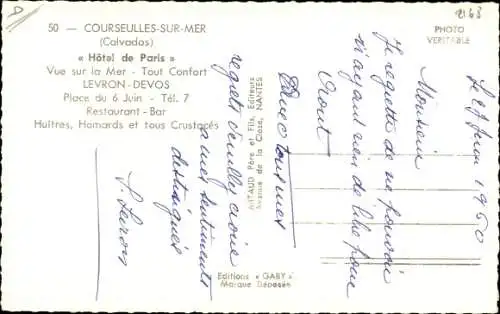 50 — COURSEULLES-SUR-MER
(Calvados)
« Hôtel de Paris »
Vue sur la Mer - Tout Confort
LEVRON-DEVOS
Place du 6 Juin - Tél. 7
Restaurant - Bar
Huîtres, Homards et tous Crustacés
D
2163
PHOTO
VERITABLE
ARTAUD Père et Fils, Editeurs
Avenue de la Close, NANTES
Editions « GABY »
Marque Déposée
Le 27 1950
Monsieur
Je regrette de ne pouvoir
n'ayant rien de libre pour
Août
Avec tous mes
regrets veuillez croire
a mes sentiments
distingués